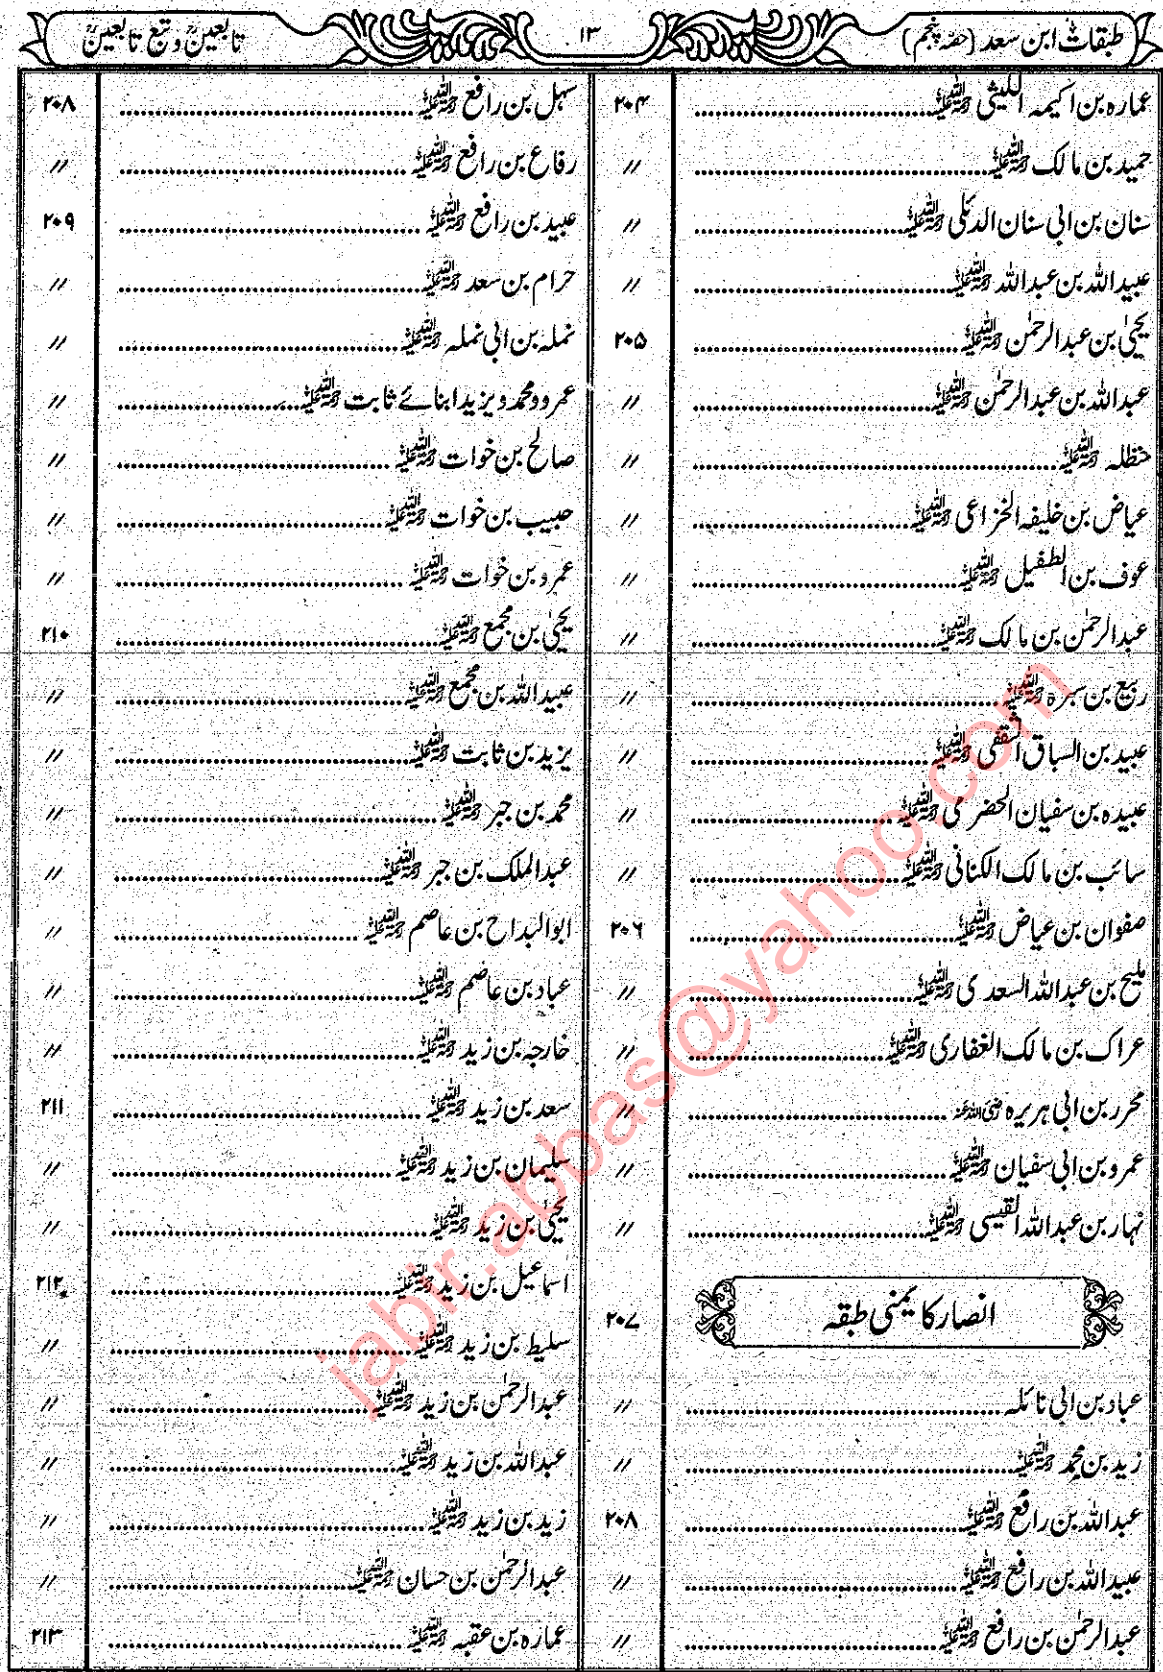 طبقات ابن سعد (حصہ پنجم)
۱۳
تابعینؒ و تبع تابعینؒ
عمارہ بن اکیمہ اللیثی رحمۃ اللہ علیہ ........ ۲۰۴
حمید بن مالک رحمۃ اللہ علیہ ........ //
سنان بن ابی سنان الدئلی رحمۃ اللہ علیہ ........ //
عبیداللہ بن عبداللہ رحمۃ اللہ علیہ ........ //
یحییٰ بن عبدالرحمٰن رحمۃ اللہ علیہ ........ ۲۰۵
عبداللہ بن عبدالرحمٰن رحمۃ اللہ علیہ ........ //
حنظلہ رحمۃ اللہ علیہ ........ //
عیاض بن خلیفہ الخزاعی رحمۃ اللہ علیہ ........ //
عوف بن الطفیل رحمۃ اللہ علیہ ........ //
عبدالرحمٰن بن مالک رحمۃ اللہ علیہ ........ //
ربیع بن سبرہ رحمۃ اللہ علیہ ........ //
عبید بن السباق الثقفی رحمۃ اللہ علیہ ........ //
عبیدہ بن سفیان الحضرمی رحمۃ اللہ علیہ ........ //
سائب بن مالک الکنانی رحمۃ اللہ علیہ ........ //
صفوان بن عیاض رحمۃ اللہ علیہ ........ ۲۰۶
ملیح بن عبداللہ السعدی رحمۃ اللہ علیہ ........ //
عراک بن مالک الغفاری رحمۃ اللہ علیہ ........ //
محرر بن ابی ہریرہ رضی اللہ عنہ ........ //
عمرو بن ابی سفیان رحمۃ اللہ علیہ ........ //
نہار بن عبداللہ القیسی رحمۃ اللہ علیہ ........ //
انصار کا یمنی طبقہ ۲۰۷
عباد بن ابی نائلہ ........ //
زید بن محمد رحمۃ اللہ علیہ ........ //
عبداللہ بن رافع رحمۃ اللہ علیہ ........ ۲۰۸
عبیداللہ بن رافع رحمۃ اللہ علیہ ........ //
عبدالرحمٰن بن رافع رحمۃ اللہ علیہ ........ //
سہل بن رافع رحمۃ اللہ علیہ ........ ۲۰۸
رفاع بن رافع رحمۃ اللہ علیہ ........ //
عبید بن رافع رحمۃ اللہ علیہ ........ ۲۰۹
حرام بن سعد رحمۃ اللہ علیہ ........ //
نملہ بن ابی نملہ رحمۃ اللہ علیہ ........ //
عمرو و محمد و یزید ابنائے ثابت رحمۃ اللہ علیہ ........ //
صالح بن خوات رحمۃ اللہ علیہ ........ //
حبیب بن خوات رحمۃ اللہ علیہ ........ //
عمرو بن خوات رحمۃ اللہ علیہ ........ //
یحییٰ بن مجمع رحمۃ اللہ علیہ ........ ۲۱۰
عبیداللہ بن مجمع رحمۃ اللہ علیہ ........ //
یزید بن ثابت رحمۃ اللہ علیہ ........ //
محمد بن جبر رحمۃ اللہ علیہ ........ //
عبدالملک بن جبر رحمۃ اللہ علیہ ........ //
ابوالبداح بن عاصم رحمۃ اللہ علیہ ........ //
عباد بن عاصم رحمۃ اللہ علیہ ........ //
خارجہ بن زید رحمۃ اللہ علیہ ........ //
سعد بن زید رحمۃ اللہ علیہ ........ ۲۱۱
سلیمان بن زید رحمۃ اللہ علیہ ........ //
یحییٰ بن زید رحمۃ اللہ علیہ ........ //
اسماعیل بن زید رحمۃ اللہ علیہ ........ ۲۱۲
سلیط بن زید رحمۃ اللہ علیہ ........ //
عبدالرحمٰن بن زید رحمۃ اللہ علیہ ........ //
عبداللہ بن زید رحمۃ اللہ علیہ ........ //
زید بن زید رحمۃ اللہ علیہ ........ //
عبدالرحمٰن بن حسان رحمۃ اللہ علیہ ........ //
عمارہ بن عقبہ رحمۃ اللہ علیہ ........ ۲۱۳
jabir.abbas@yahoo.com